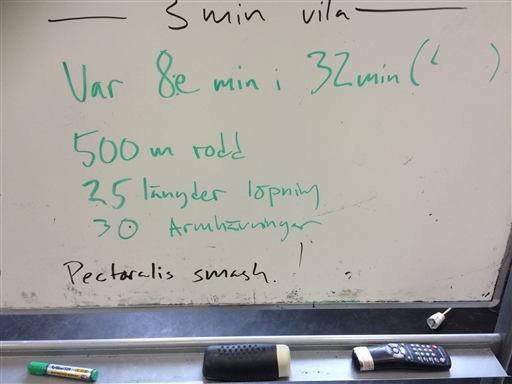 3 min vila
Var 8:e min i 32 min ( )
500 m rodd
25 längder löpning
30 Armhävningar
Pectoralis smash.!